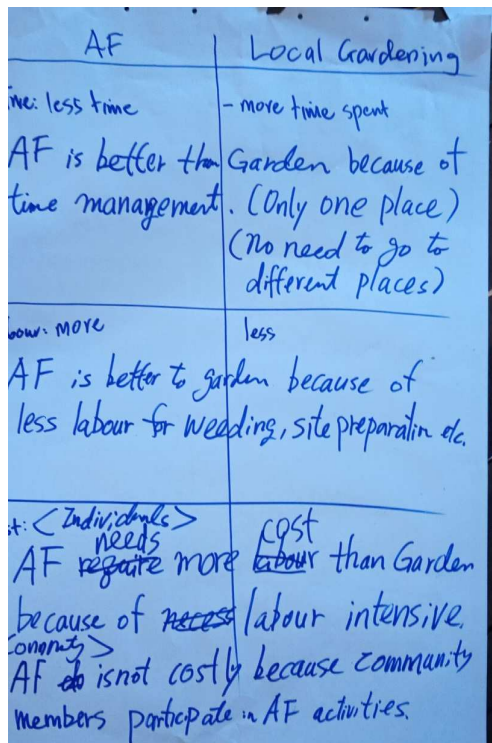 AF Local Gardening
me: less time - more time spent
AF is better than Garden because of
time management. (Only one place)
(No need to go to
different places)
bour: more less
AF is better to garden because of
less labour for weeding, site preparatin etc.
st: <Individuals>
needs cost
AF require more labour than Garden
because of necess labour intensive.
AF do is not costly because community
members particpate in AF activities.